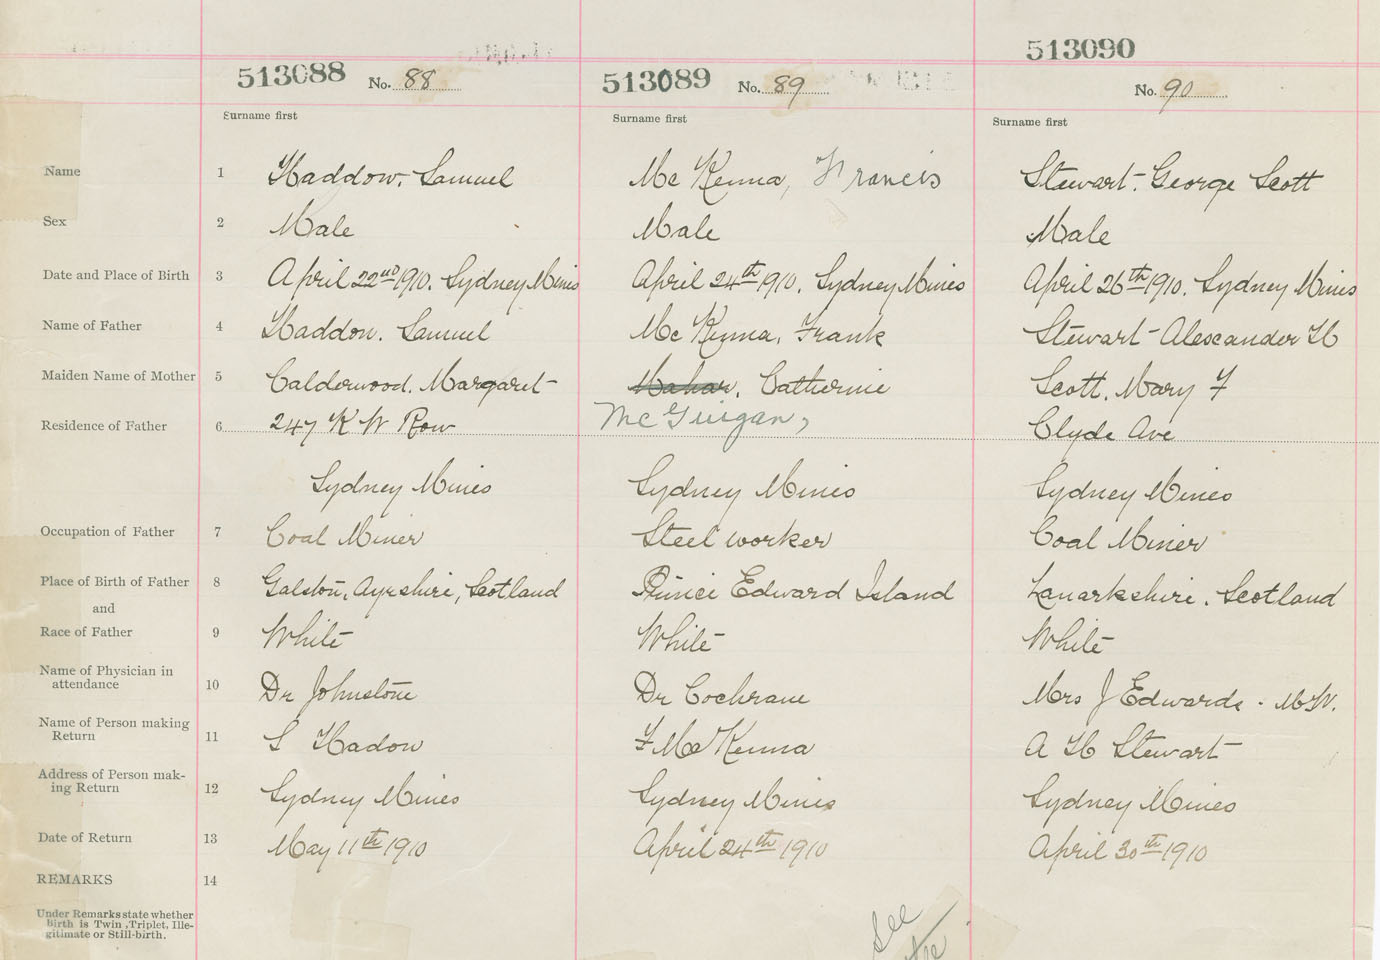 513088 No. 88
513089 No. 89
513090
No. 90
Surname first
Surname first
Surname first
Name 1 Haddow, Samuel
Mc Kenna, Francis
Stewart. George Scott
Sex 2 Male
Male
Male
Date and Place of Birth 3 April 22nd 1910. Sydney Mines
April 24th 1910. Sydney Mines
April 26th 1910. Sydney Mines
Name of Father 4 Haddon. Samuel
Mc Kenna, Frank
Stewart Alexander H
Maiden Name of Mother 5 Calderwood. Margaret
Mahar, Catherine
Scott. Mary F
Residence of Father 6 247 K W Row
Mc Guigan,
Clyde Ave
Sydney Mines
Sydney Mines
Sydney Mines
Occupation of Father 7 Coal Miner
Steel worker
Coal Miner
Place of Birth of Father 8 Galston, Ayrshire, Scotland
Prince Edward Island
Lanarkshire. Scotland
and
Race of Father 9 White
White
White
Name of Physician in
attendance 10 Dr Johnstone
Dr Cochrane
Mrs J Edwards. M.W.
Name of Person making
Return 11 S Hadow
F Mc Kenna
A H Stewart
Address of Person mak-
ing Return 12 Sydney Mines
Sydney Mines
Sydney Mines
Date of Return 13 May 11th 1910
April 24th 1910
April 30th 1910
REMARKS 14
Under Remarks state whether
Birth is Twin, Triplet, Ille-
gitimate or Still-birth.
See